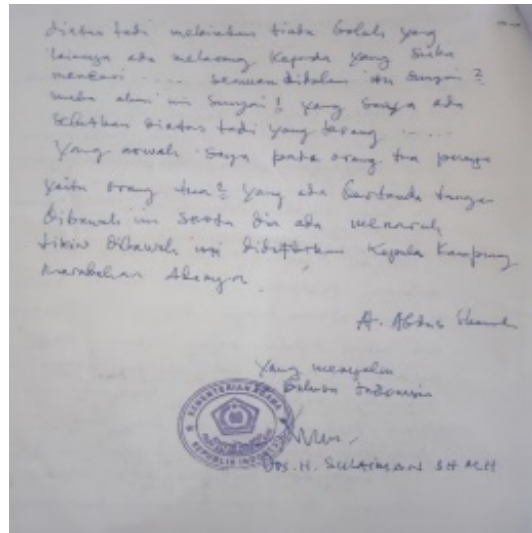 diatas tadi melainkan tiada boleh yang
lainnya ada melarang kepada yang suka
mencari .... semuan didalam itu sungai2
muka alam ini sungai2 yang saya ada
sebutkan diatas tadi yang terang .....
Yang arwah saya para orang tua
yaitu orang tua2 yang ada bertanda tangan
dibawah ini serta dia ada menaruh
dibawah ini didaftarkan Kepala Kampung
Marabahan
A. Abdus
Yang menyalin
Bahasa Indonesia
KEMENTERIAN AGAMA
REPUBLIK INDONESIA
Drs. H. SULAIMAN SH MH